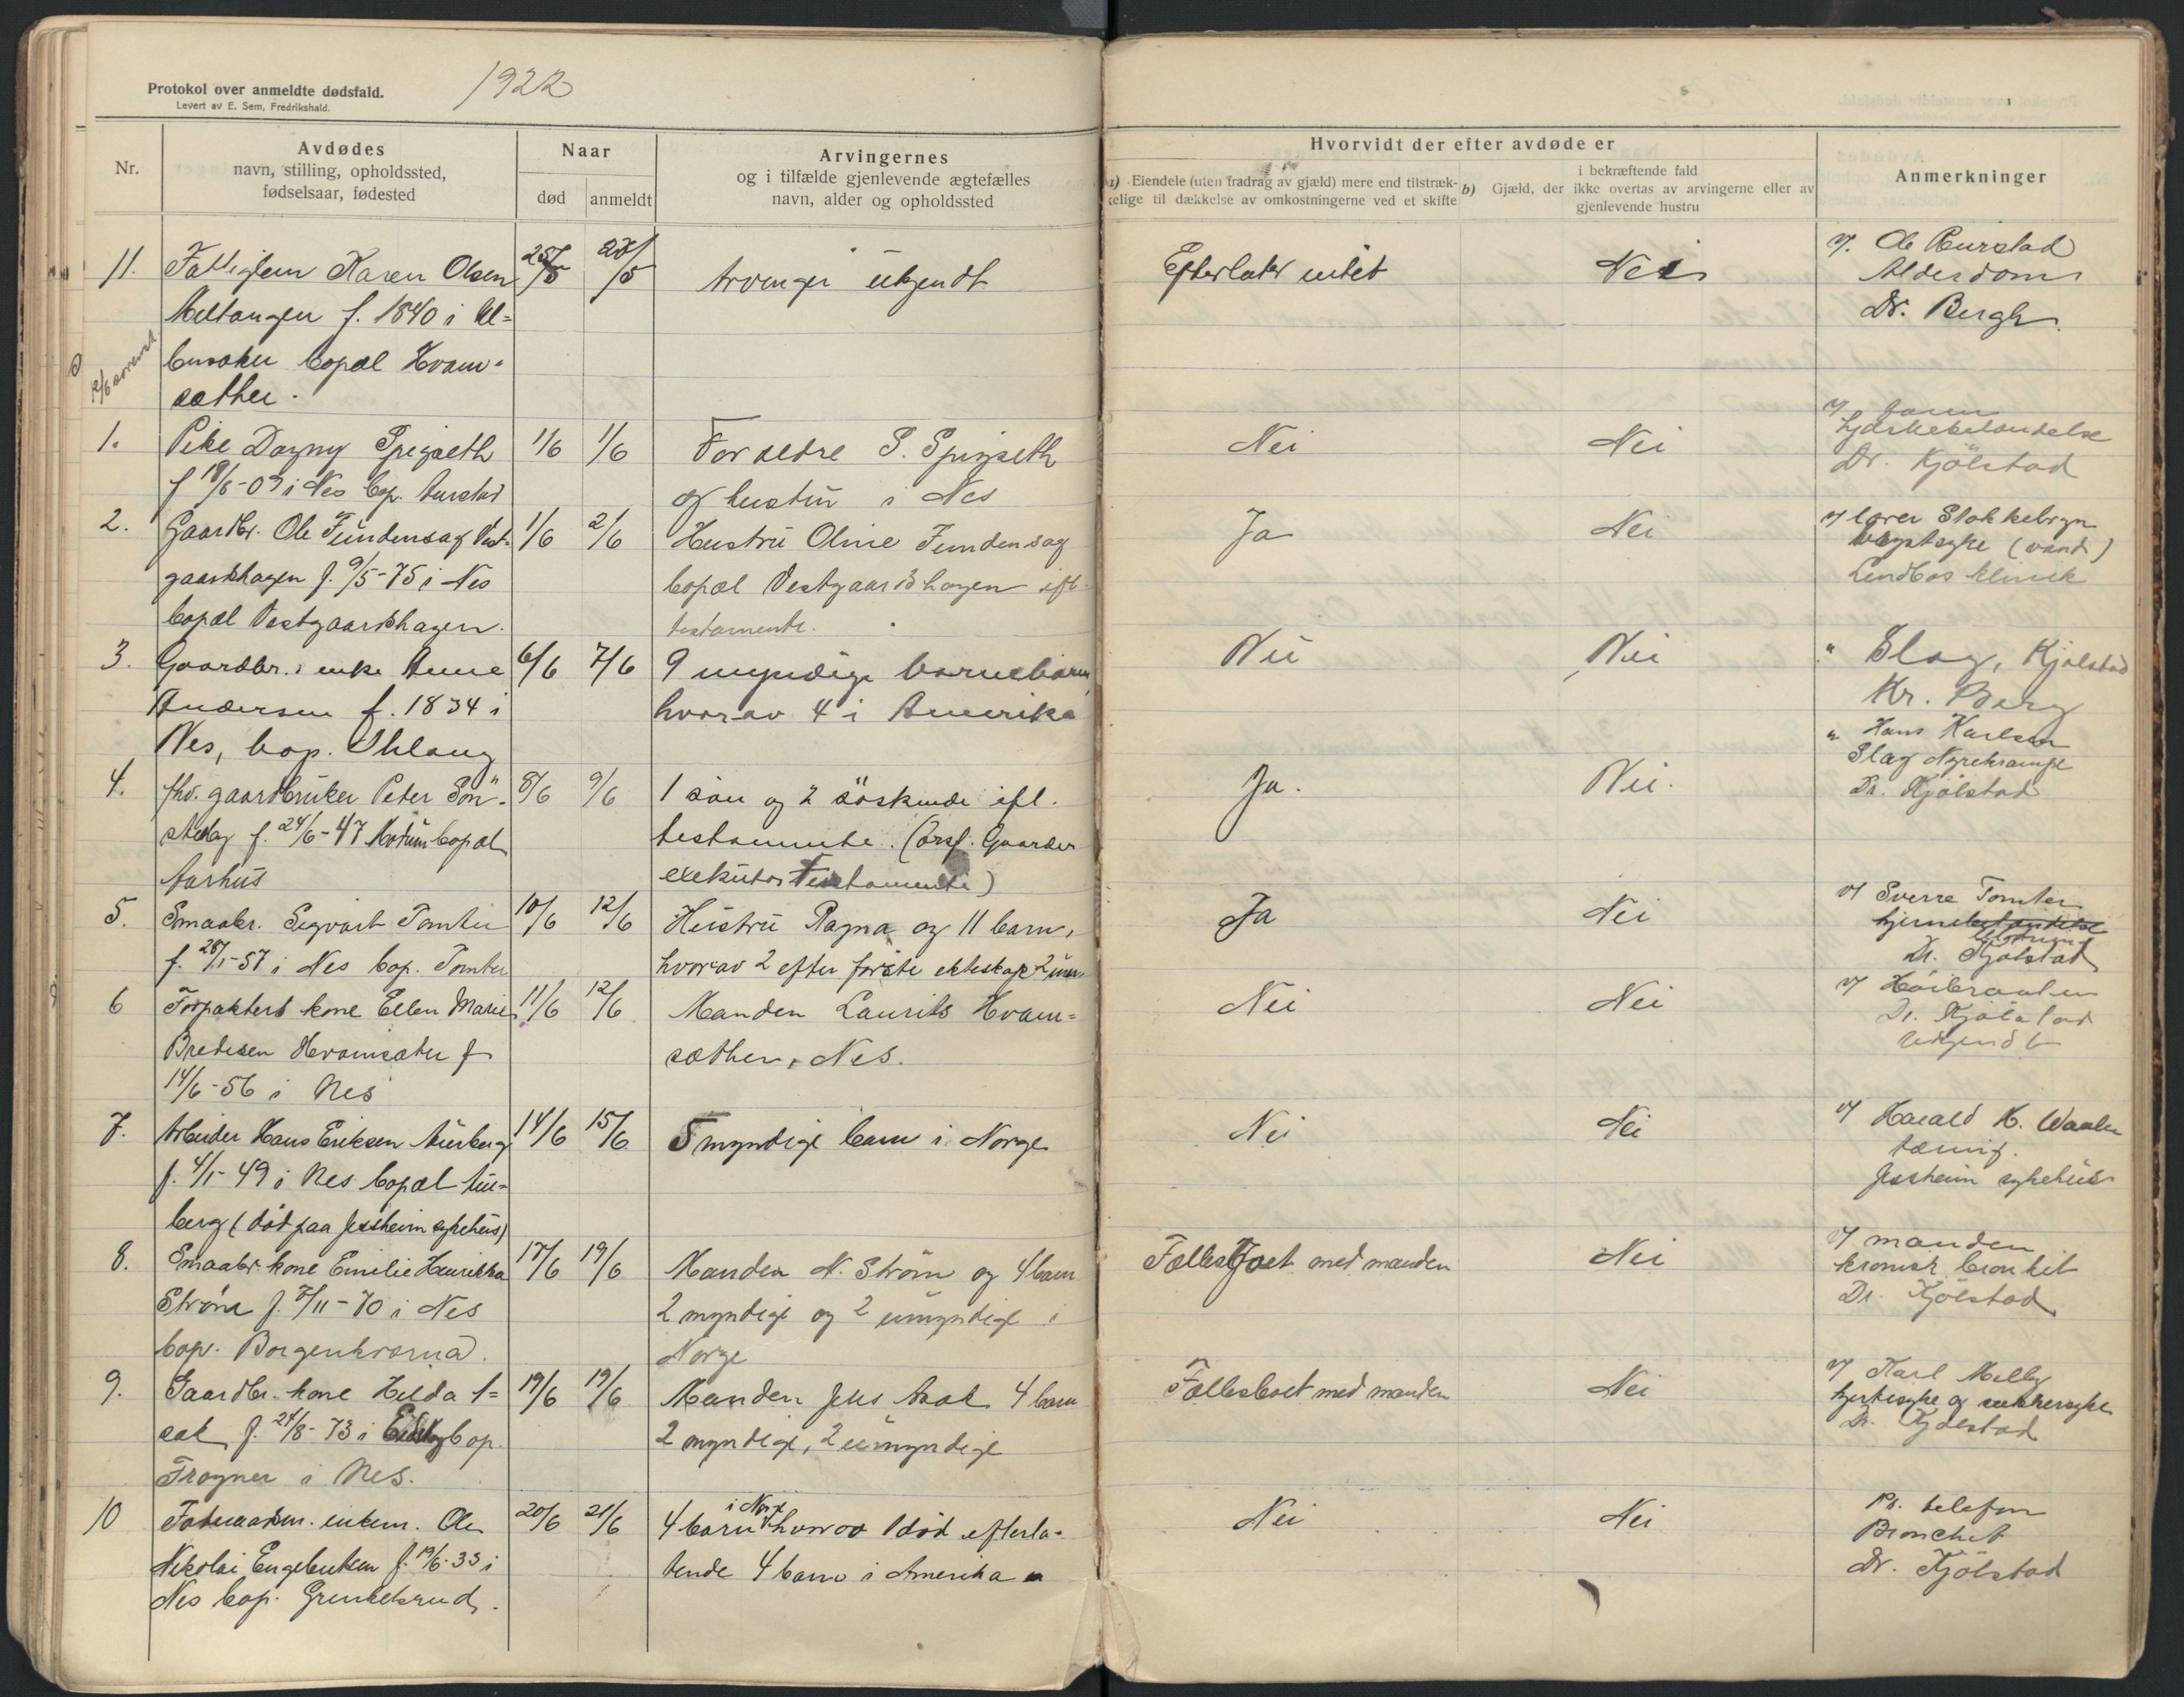 Protokol over anmeldte dødsfald.
Levert av E. Sem, Fredrikshald.
1922
Nr.
Avdødes
navn, stilling, opholdssted,
fødselsaar, fødested
Naar
død
anmeldt
Arvingernes
og i tilfælde gjenlevende ægtefælles
navn, alder og opholdssted
Hvorvidt der efter avdøde er
a) Eiendele (uten fradrag av gjæld) mere end tilstræk-
kelige til dækkelse av omkostningerne ved et skifte
b) Gjæld, der
i bekræftende fald
ikke overtas av arvingerne eller av
gjenlevende hustru
Anmerkninger
11. Fattiglem Karen Olsen 25/5 27/5 Arvinger ukjendt Efterlater intet Nei
f. 1840 i Ul-
lensaker bopæl Hvam-
sæther.
v/ Ole
Alderdom
Dr. Bergh
1. Pike Dagny 1/6 1/6 Forældre S. Nei Nei
f 18/8-09 i Nes bop. Aurstad og hustru i Nes
Dr. Kjölstad
2. Gaardbr. Ole Fundensag Vest- 1/6 2/6 Hustru Oline Fundensag Ja Nei
gaardshagen f. 9/5-75 i Nes bopæl Vestgaardshagen efl.
bopæl Vestgaardshagen. testamente.
v/ lærer Stokkebryn
(vand)
klinik
3. Gaardbr. enke Anne 6/6 7/6 9 myndige barnebarn Nei Nei
Andersen f. 1834 i hvorav 4 i Amerika
Nes, bop.
" Slag, Kjølstad
Kr. Berg
4. fhv. gaardbruker Peter Sön- 8/6 9/6 1 sön og 2 söskende efl. Ja. Nei.
f. 24/6-47 bopæl testamente. (orsf. Gaarder
Aarhus eksekutor Testamente)
" Hans Karlsen
Slag Nyrekrampe
Dr. Kjölstad
5. Smaabr. Sigvart Tomter 10/6 12/6 Hustru Ragna og 11 barn, Ja Nei
f. 28/1-57 i Nes bop. Tomter hvorav 2 efter förste ekteskap 2 um.
v/ Sverre Tomter
Dr. Kjölstad
6 Forpakters kone Ellen Marie 11/6 12/6 Manden Laurits Hvam- Nei Nei
Bredesen Hvamsæter f sæther, Nes.
14/6-56 i Nes
v/ Höibraaten
Dr. Kjölstad
7. Arbeider Hans Eriksen Aurberg 14/6 15/6 5 myndige barn i Norge Nei Nei
f. 4/1-49 i Nes bopæl Aur-
berg (död paa Jessheim sykehus)
v/ Harald H. Waaler
Jessheim sykehus
8. Smaabr. kone Emilie Henrikka 17/6 19/6 Manden N. Ström og 4 barn Fællesboet med manden Nei
Ström f. 7/11-70 i Nes 2 myndige og 2 umyndige i
bop. Borgenkværna. Norge
v/ manden
kronisk bronkit
Dr. Kjölstad
9. Gaardbr. kone Hilda A- 19/6 19/6 Manden Jens Asak 4 barn Fællesboet med manden Nei
sak f. 27/8-73 i Eidskog bop. 2 myndige, 2 umyndige
Frogner i Nes.
v/ Karl Melby
hjertesyke og sukkersyke
Dr. Kjölstad
10 enkem. Ole 20/6 21/6 4 barn i Norge hvorav 1 död efterla- Nei Nei
Nikolai Engebretsen f. 19/6-33 i tende 4 barn i Amerika
Nes bop.
Pr. telefon
Bronchit
Dr. Kjölstad